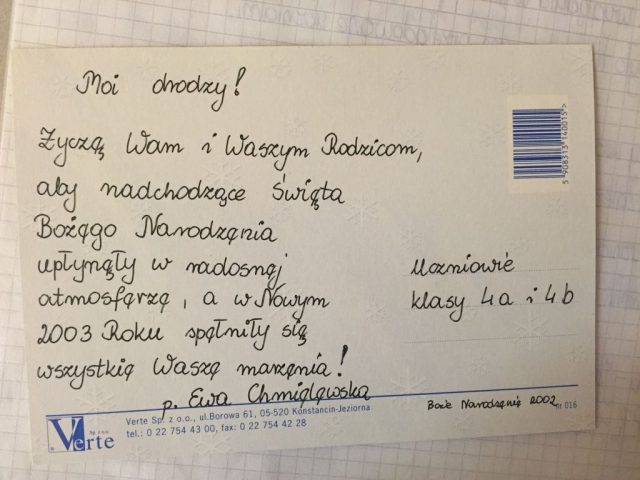 Moi drodzy!
Życzę Wam i Waszym Rodzicom,
aby nadchodzące Święta
Bożego Narodzenia
upłynęły w radosnej
atmosferze, a w Nowym
2003 Roku spełniły się
wszystkie Wasze marzenia!
p. Ewa Chmielewska
Uczniowie
klasy 4a i 4b
Boże Narodzenie 2002
5 908313 140015 >
Verte Sp. z o.o.
Verte Sp. z o.o., ul.Borowa 61, 05-520 Konstancin-Jeziorna
tel.: 0 22 754 43 00, fax: 0 22 754 42 28
nr 016